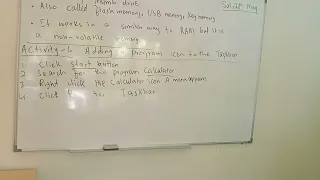 Also called thumb drive
flash memory, USB memory, key memory
It works in a similar way to RAM but it is
a non-volatile memory
Activity-6 Adding a program icon to the Taskbar
1 Click start button
2 Search for the program Calculator
3 Right click the Calculator icon A menu appears
4 Click to Taskbar